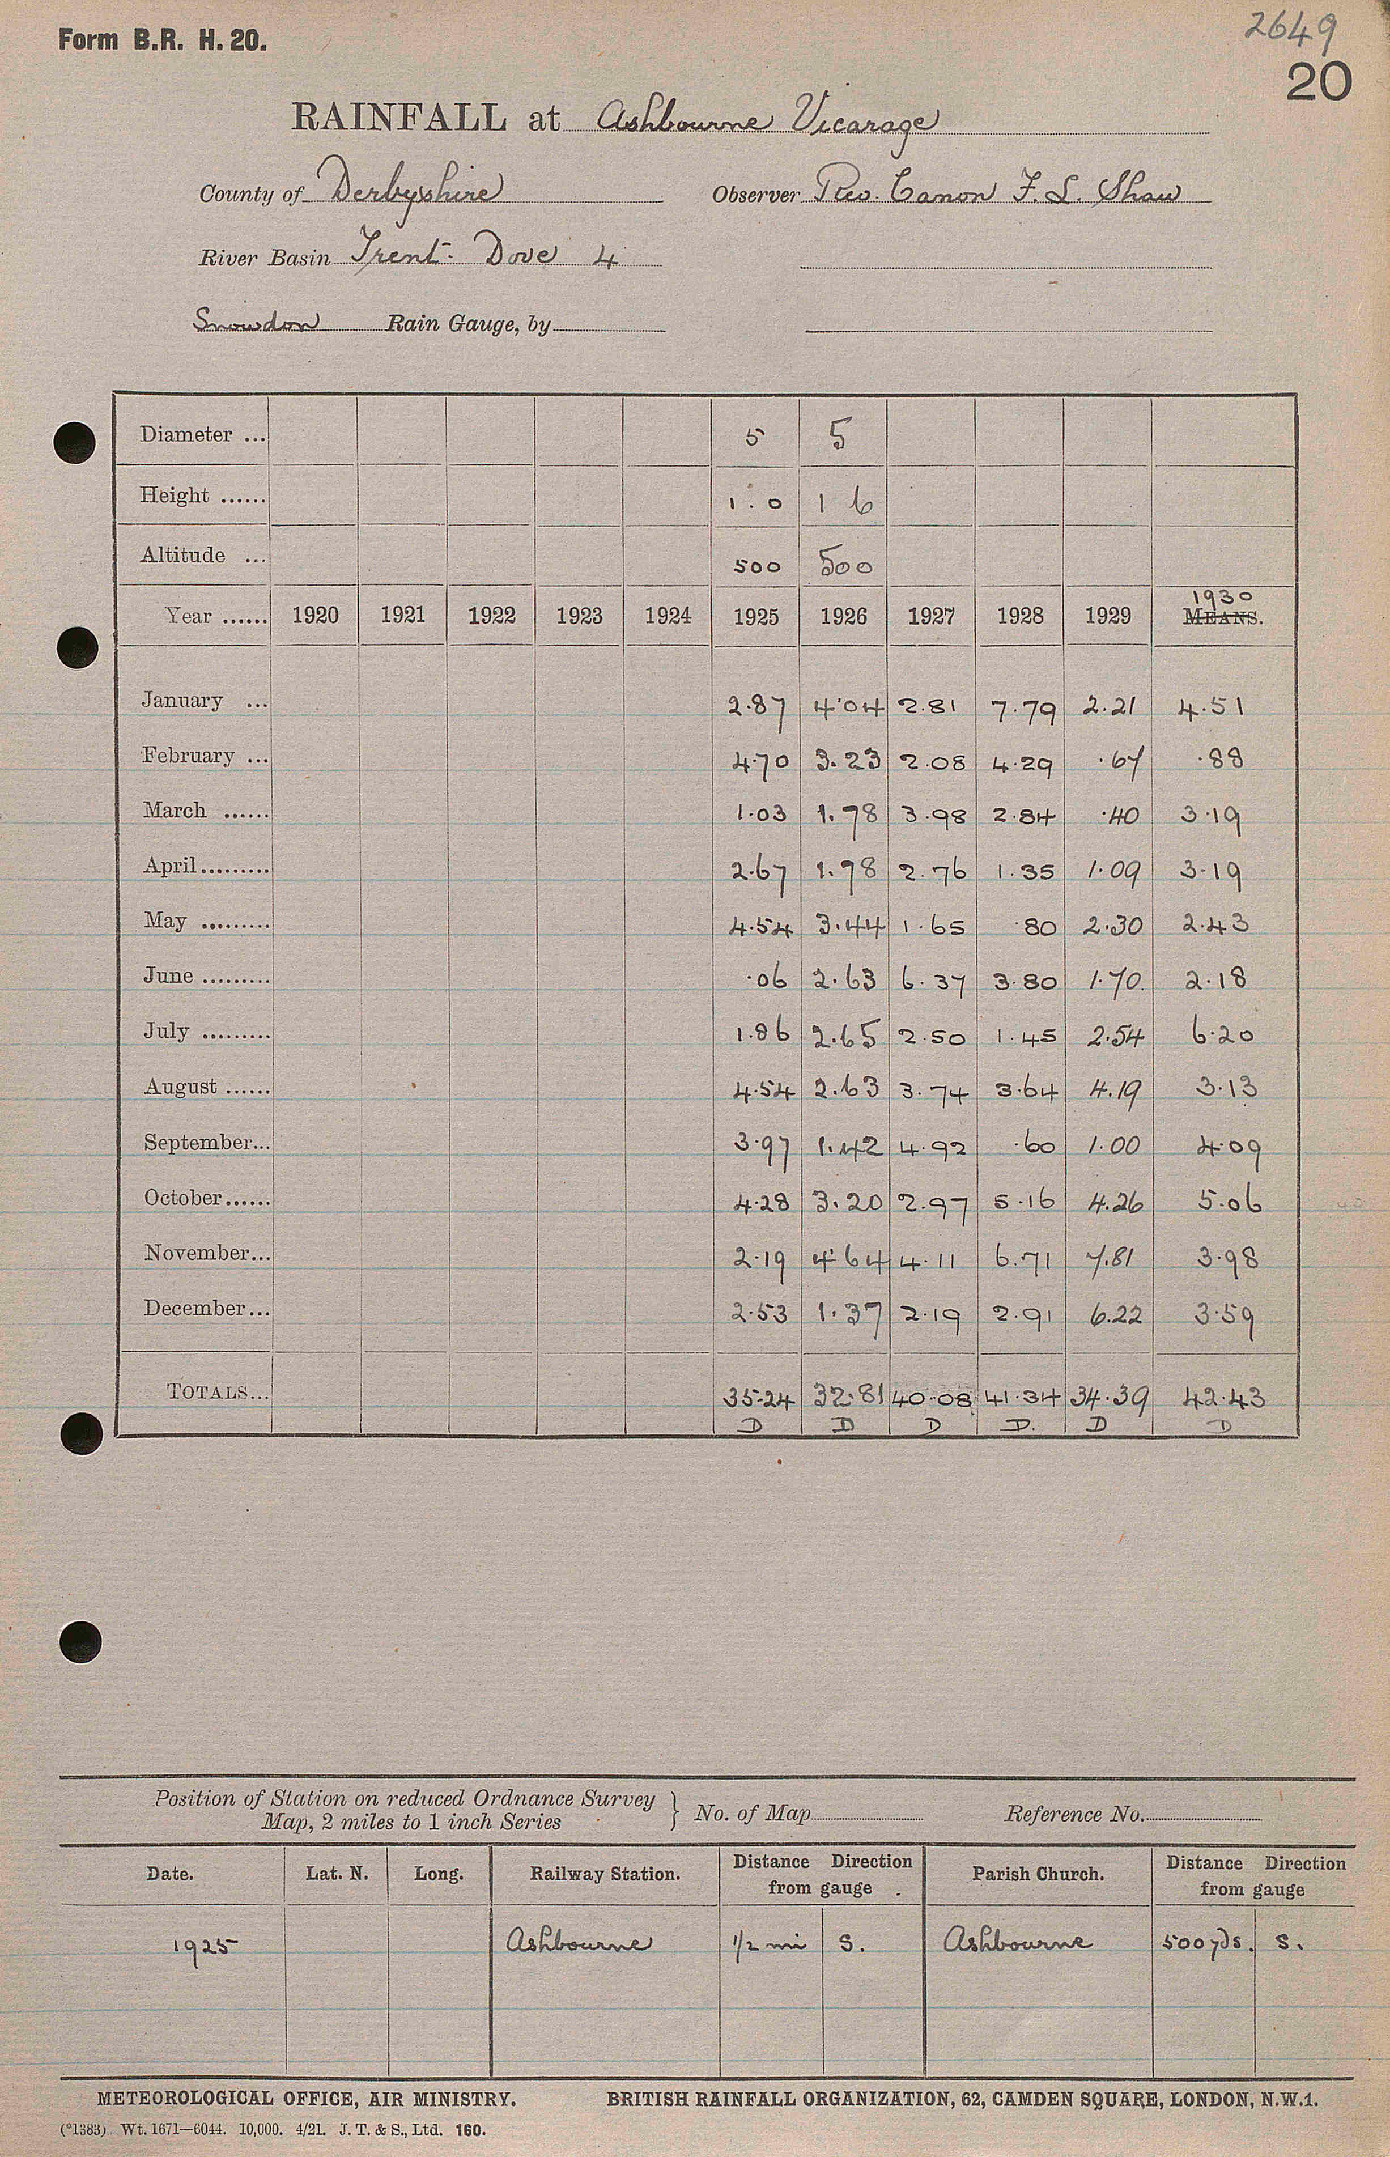 Form B.R. H. 20.
2649
20
RAINFALL at Ashbourne Vicarage
County of Derbyshire Observer Rev. Canon F. L. Shaw
River Basin Trent. Dove 4
Snowdon Rain Gauge, by
Diameter ... 5 5
Height ...... 1.0 1 6
Altitude ... 500 500
1930
Year ...... 1920 1921 1922 1923 1924 1925 1926 1927 1928 1929 MEANS.
January ... 2.87 4.04 2.81 7.79 2.21 4.51
February ... 4.70 3.23 2.08 4.29 .67 .88
March ...... 1.03 1.78 3.98 2.84 .40 3.19
April......... 2.67 1.78 2.76 1.35 1.09 3.19
May ......... 4.54 3.44 1.65 .80 2.30 2.43
June ......... .06 2.63 6.37 3.80 1.70 2.18
July ......... 1.86 2.65 2.50 1.45 2.54 6.20
August ...... 4.54 2.63 3.74 3.64 4.19 3.13
September... 3.97 1.42 4.92 .60 1.00 4.09
October...... 4.28 3.20 2.97 5.16 4.26 5.06
November... 2.19 4.64 4.11 6.71 7.81 3.98
December... 2.53 1.37 2.19 2.91 6.22 3.59
TOTALS... 35.24 32.81 40.08 41.34 34.39 42.43
D D D D. D D
Position of Station on reduced Ordnance Survey
Map, 2 miles to 1 inch Series } No. of Map Reference No.
Date. Lat. N. Long. Railway Station. Distance Direction from gauge Parish Church. Distance Direction from gauge
1925 Ashbourne 1/2 mi S. Ashbourne 500 yds. S.
METEOROLOGICAL OFFICE, AIR MINISTRY. BRITISH RAINFALL ORGANIZATION, 62, CAMDEN SQUARE, LONDON, N.W.1.
(*1383). Wt. 1671—6044. 10,000. 4/21. J. T. & S., Ltd. 160.